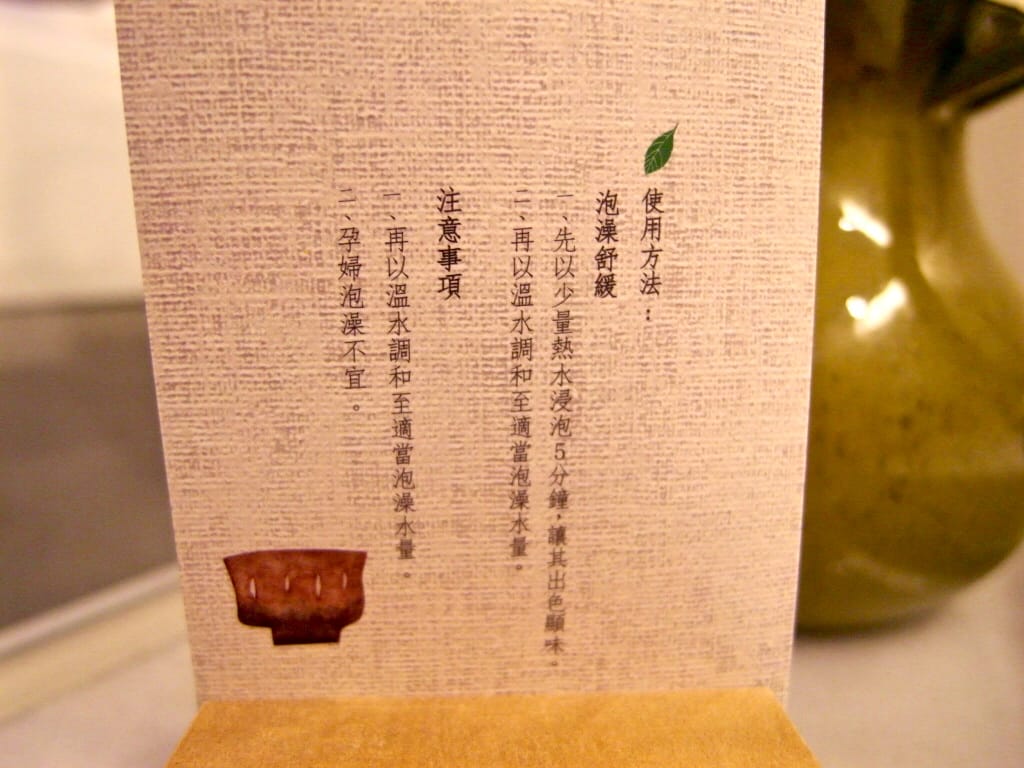 使用方法：
泡澡舒緩
一、先以少量熱水浸泡5分鐘，讓其出色顯味。
二、再以溫水調和至適當泡澡水量。
注意事項
一、再以溫水調和至適當泡澡水量。
二、孕婦泡澡不宜。